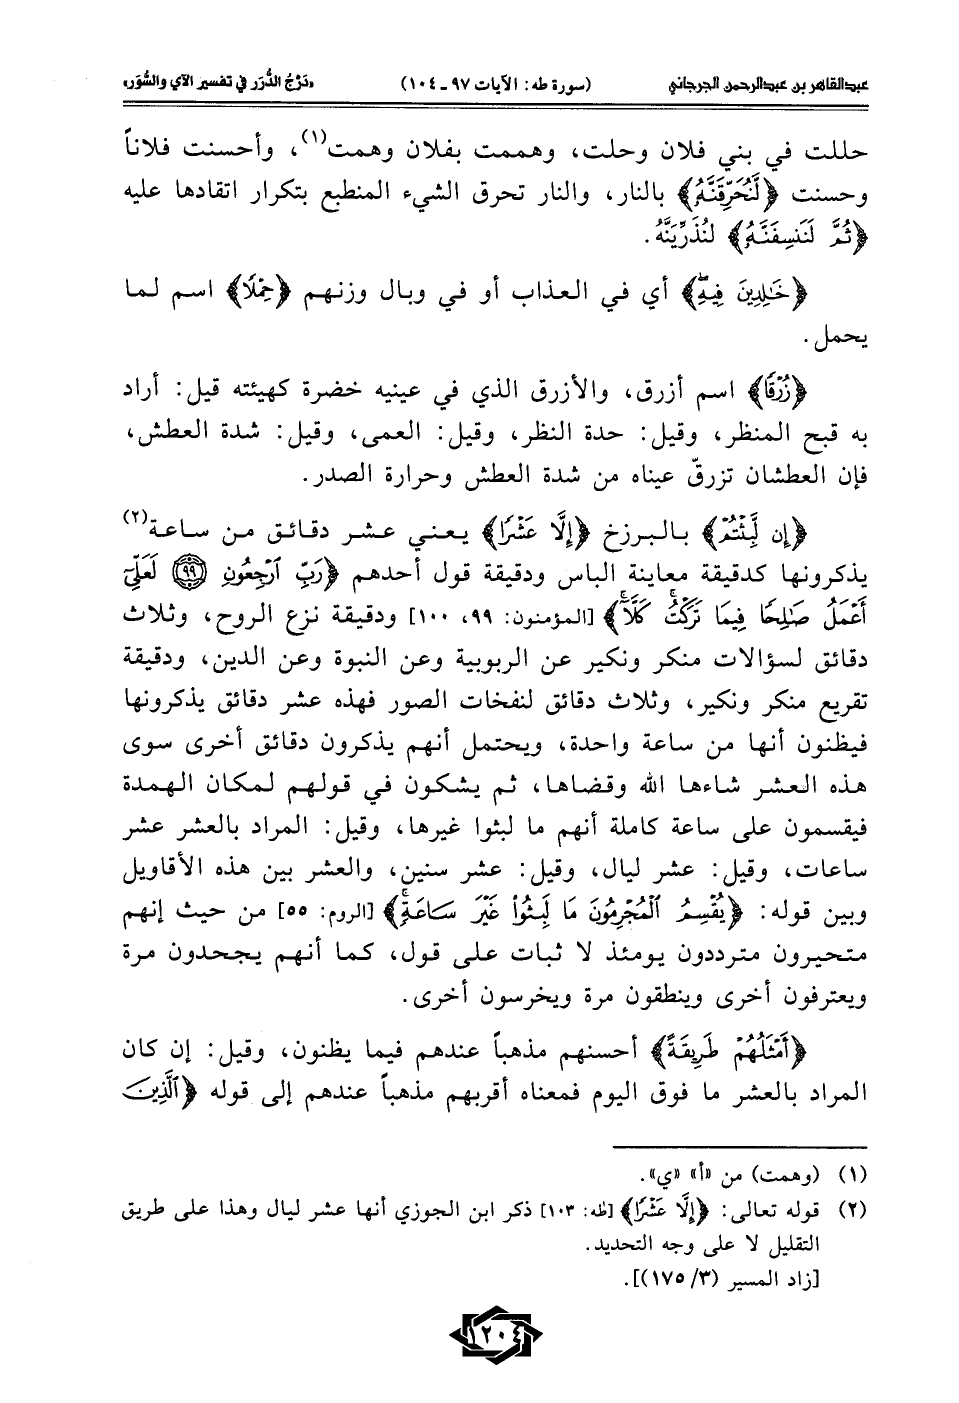 عبدالقاهر بن عبدالرحمن الجرجاني (سورة طه: الآيات ٩٧ - ١٠٤) «دَرْجُ الدُّرَر في تفسير الآي والسُّوَر»
حللت في بني فلان وحلت، وهممت بفلان وهمت(١)، وأحسنت فلاناً
وحسنت ﴿لَّنُحَرِّقَنَّهُۥ﴾ بالنار، والنار تحرق الشيء المنطبع بتكرار اتقادها عليه
﴿ثُمَّ لَنَنسِفَنَّهُۥ﴾ لنُذَرِّيَنَّهُ.
﴿خَٰلِدِينَ فِيهِ﴾ أي في العذاب أو في وبال وزنهم ﴿حِمْلًا﴾ اسم لما
يحمل.
﴿زُرْقًا﴾ اسم أزرق، والأزرق الذي في عينيه خضرة كهيئته قيل: أراد
به قبح المنظر، وقيل: حدة النظر، وقيل: العمى، وقيل: شدة العطش،
فإن العطشان تزرقّ عيناه من شدة العطش وحرارة الصدر.
﴿إِن لَّبِثْتُمْ﴾ بالبرزخ ﴿إِلَّا عَشْرًا﴾ يعني عشر دقائق من ساعة(٢)
يذكرونها كدقيقة معاينة الباس ودقيقة قول أحدهم ﴿رَبِّ ٱرْجِعُونِ ۝٩٩ لَعَلِّىٓ
أَعْمَلُ صَٰلِحًا فِيمَا تَرَكْتُ ۚ كَلَّآ ۚ﴾ [المؤمنون: ٩٩، ١٠٠] ودقيقة نزع الروح، وثلاث
دقائق لسؤالات منكر ونكير عن الربوبية وعن النبوة وعن الدين، ودقيقة
تقريع منكر ونكير، وثلاث دقائق لنفخات الصور فهذه عشر دقائق يذكرونها
فيظنون أنها من ساعة واحدة، ويحتمل أنهم يذكرون دقائق أخرى سوى
هذه العشر شاءها الله وقضاها، ثم يشكون في قولهم لمكان الهمدة
فيقسمون على ساعة كاملة أنهم ما لبثوا غيرها، وقيل: المراد بالعشر عشر
ساعات، وقيل: عشر ليال، وقيل: عشر سنين، والعشر بين هذه الأقاويل
وبين قوله: ﴿يُقْسِمُ ٱلْمُجْرِمُونَ مَا لَبِثُوا۟ غَيْرَ سَاعَةٍ ۚ﴾ [الروم: ٥٥] من حيث إنهم
متحيرون مترددون يومئذ لا ثبات على قول، كما أنهم يجحدون مرة
ويعترفون أخرى وينطقون مرة ويخرسون أخرى.
﴿أَمْثَلُهُمْ طَرِيقَةً﴾ أحسنهم مذهباً عندهم فيما يظنون، وقيل: إن كان
المراد بالعشر ما فوق اليوم فمعناه أقربهم مذهباً عندهم إلى قوله ﴿ٱلَّذِينَ
(١) (وهمت) من «أ» «ي».
(٢) قوله تعالى: ﴿إِلَّا عَشْرًا﴾ [طه: ١٠٣] ذكر ابن الجوزي أنها عشر ليال وهذا على طريق
التقليل لا على وجه التحديد.
[زاد المسير (٣/ ١٧٥)].
١٢٠٤